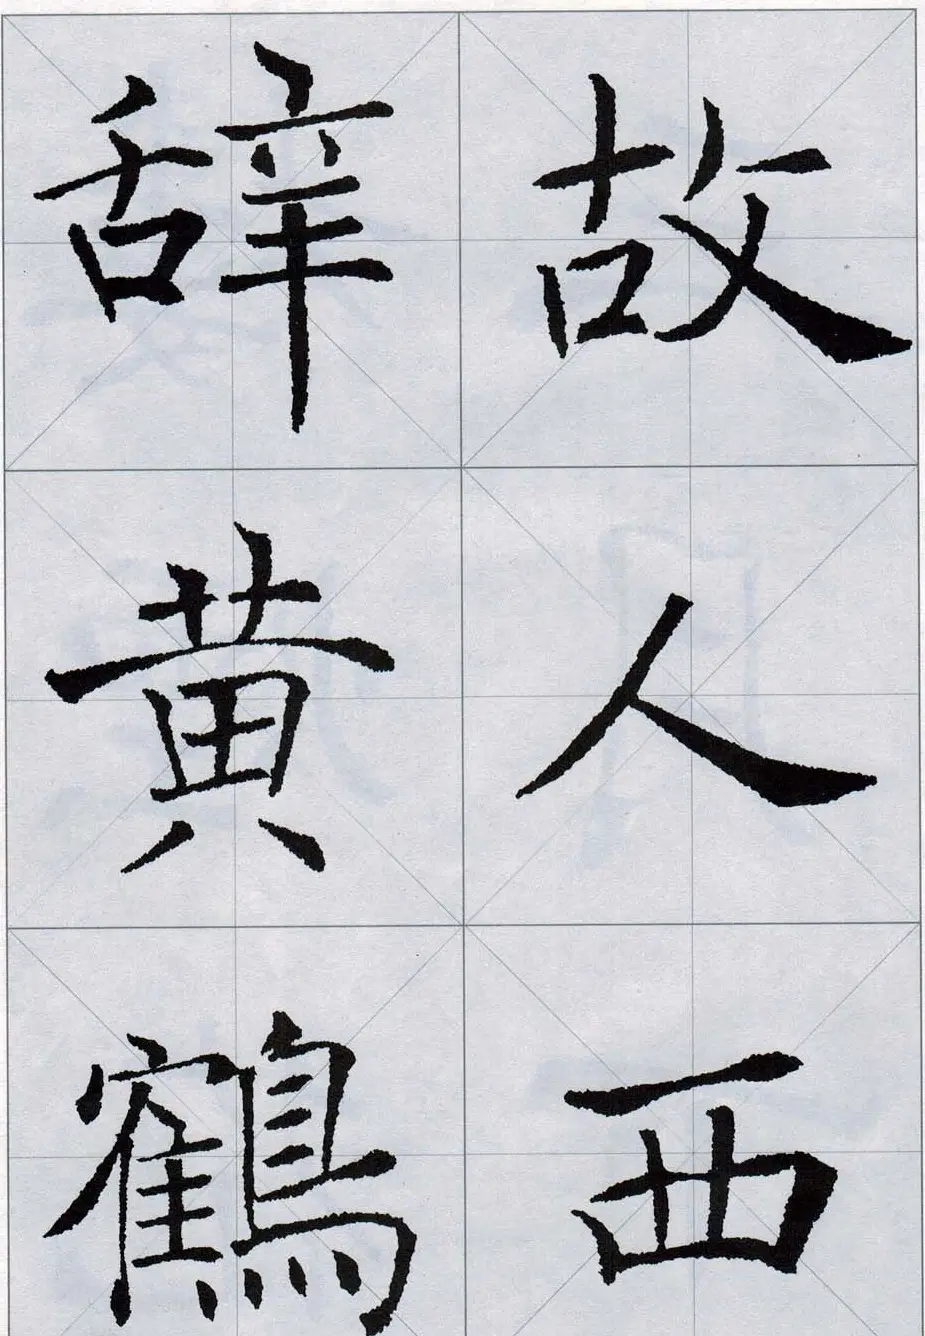 故人西
辞黄鹤